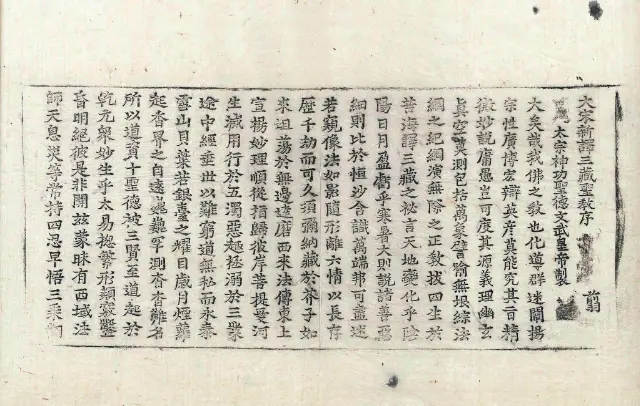 大宋新譯三藏聖教序
太宗神功聖德文武皇帝製
翦
大矣哉我佛之教也化導群迷闡揚
宗性廣博宏辯英彥莫能究其旨精
微妙說庸愚豈可度其源義理幽玄
真空莫測包括萬象譬喻無垠綜法
網之紀綱演無際之正教拔四生於
苦海譯三藏之祕言天地變化乎陰
陽日月盈虧乎寒暑大則說諸善惡
細則比於恒沙含識萬端弗可盡述
若窺像法如影隨形離六情以長存
歷千劫而可久須彌納藏於芥子如
來坦蕩於無邊達磨西來法傳東土
宣揚妙理順從指歸彼岸菩提愛河
生滅用行於五濁惡趣拯溺於三業
途中經垂世以難窮道無私而永泰
雪山貝葉若銀臺之耀目歲月煙蘿
起香界之自遠巍巍罕測杳杳難名
所以道資十聖德被三賢至道起於
乾元眾妙生乎太易總繁形類竅鑿
昏明絕彼是非開茲蒙昧有西域法
師天息災等常持四忍早悟三乘